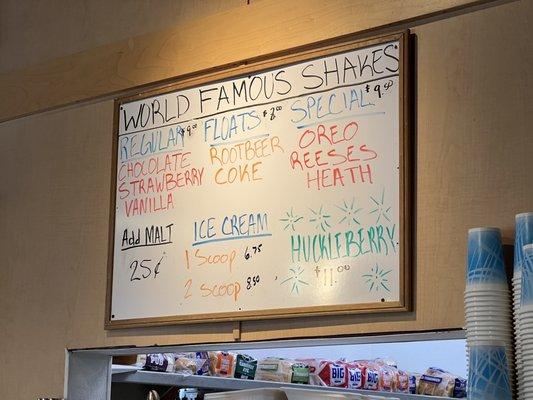 WORLD FAMOUS SHAKES
REGULAR $9.00
CHOCOLATE
STRAWBERRY
VANILLA
FLOATS $8.00
ROOTBEER
COKE
SPECIAL
OREO
REESES
HEATH
Add MALT
25¢
ICE CREAM
1 SCOOP 6.75
2 SCOOP 8.50
HUCKLEBERRY
$11.00
BIG
BIG